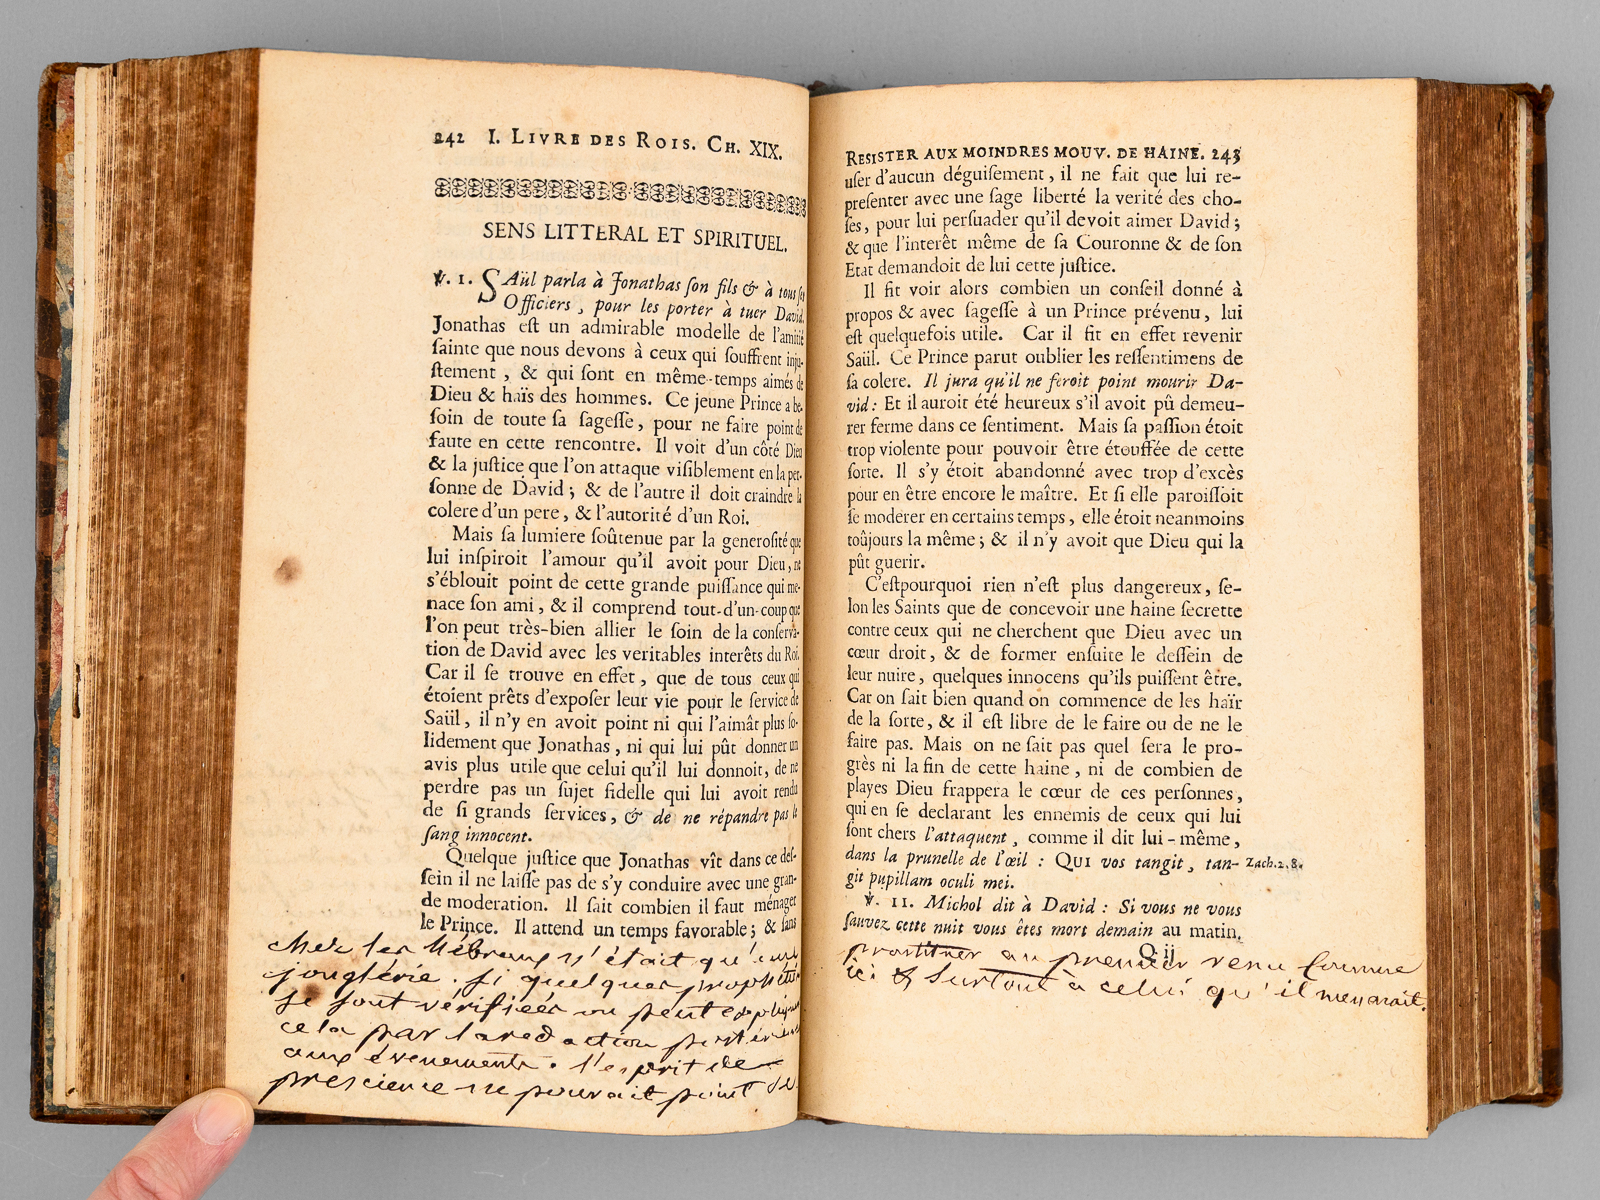 242 I. LIVRE DES ROIS. CH. XIX.
SENS LITTERAL ET SPIRITUEL.
℣. 1. SAül parla à Jonathas ſon fils & à tous ſes
Officiers, pour les porter à tuer David.
Jonathas eſt un admirable modelle de l'amitié
ſainte que nous devons à ceux qui ſouffrent inju-
ſtement, & qui ſont en même-temps aimés de
Dieu & haïs des hommes. Ce jeune Prince a be-
ſoin de toute ſa ſageſſe, pour ne faire point de
faute en cette rencontre. Il voit d'un côté Dieu
& la juſtice que l'on attaque viſiblement en la per-
ſonne de David; & de l'autre il doit craindre la
colere d'un pere, & l'autorité d'un Roi.
Mais ſa lumiere ſoûtenue par la generoſité que
lui inſpiroit l'amour qu'il avoit pour Dieu, ne
s'éblouit point de cette grande puiſſance qui me-
nace ſon ami, & il comprend tout-d'un-coup que
l'on peut très-bien allier le ſoin de la conſerva-
tion de David avec les veritables interêts du Roi.
Car il ſe trouve en effet, que de tous ceux qui
étoient prêts d'expoſer leur vie pour le ſervice de
Saül, il n'y en avoit point ni qui l'aimât plus ſo-
lidement que Jonathas, ni qui lui pût donner un
avis plus utile que celui qu'il lui donnoit, de ne
perdre pas un ſujet fidelle qui lui avoit rendu
de ſi grands ſervices, & de ne répandre pas le
ſang innocent.
Quelque juſtice que Jonathas vît dans ce deſ-
ſein il ne laiſſe pas de s'y conduire avec une gran-
de moderation. Il ſait combien il faut ménager
le Prince. Il attend un temps favorable; & ſans
chez les hébreux n'était qu'une
jonglérie. si quelques prophéties
se sont vérifiées on peut expliquer
cela par la redaction postérieure
aux évenements. l'esprit de
prescience ne pouvait point se
RESISTER AUX MOINDRES MOUV. DE HAINE. 243
uſer d'aucun déguiſement, il ne fait que lui re-
preſenter avec une ſage liberté la verité des cho-
ſes, pour lui perſuader qu'il devoit aimer David;
& que l'interêt même de ſa Couronne & de ſon
Etat demandoit de lui cette juſtice.
Il fit voir alors combien un conſeil donné à
propos & avec ſageſſe à un Prince prévenu, lui
eſt quelquefois utile. Car il fit en effet revenir
Saül. Ce Prince parut oublier les reſſentimens de
ſa colere. Il jura qu'il ne feroit point mourir Da-
vid: Et il auroit été heureux s'il avoit pû demeu-
rer ferme dans ce ſentiment. Mais ſa paſſion étoit
trop violente pour pouvoir être étouffée de cette
ſorte. Il s'y étoit abandonné avec trop d'excès
pour en être encore le maître. Et ſi elle paroiſſoit
ſe moderer en certains temps, elle étoit neanmoins
toûjours la même; & il n'y avoit que Dieu qui la
pût guerir.
C'eſtpourquoi rien n'eſt plus dangereux, ſe-
lon les Saints que de concevoir une haine ſecrette
contre ceux qui ne cherchent que Dieu avec un
cœur droit, & de former enſuite le deſſein de
leur nuire, quelques innocens qu'ils puiſſent être.
Car on ſait bien quand on commence de les haïr
de la ſorte, & il eſt libre de le faire ou de ne le
faire pas. Mais on ne ſait pas quel ſera le pro-
grès ni la fin de cette haine, ni de combien de
playes Dieu frappera le cœur de ces perſonnes,
qui en ſe declarant les ennemis de ceux qui lui
ſont chers l'attaquent, comme il dit lui-même,
dans la prunelle de l'œil: QUI vos tangit, tan- Zach. 2. 8.
git pupillam oculi mei.
℣. 11. Michol dit à David: Si vous ne vous
ſauvez cette nuit vous êtes mort demain au matin.
Q ij
prostituer au premier venu comme
ici & surtout à celui qu'il menarait.